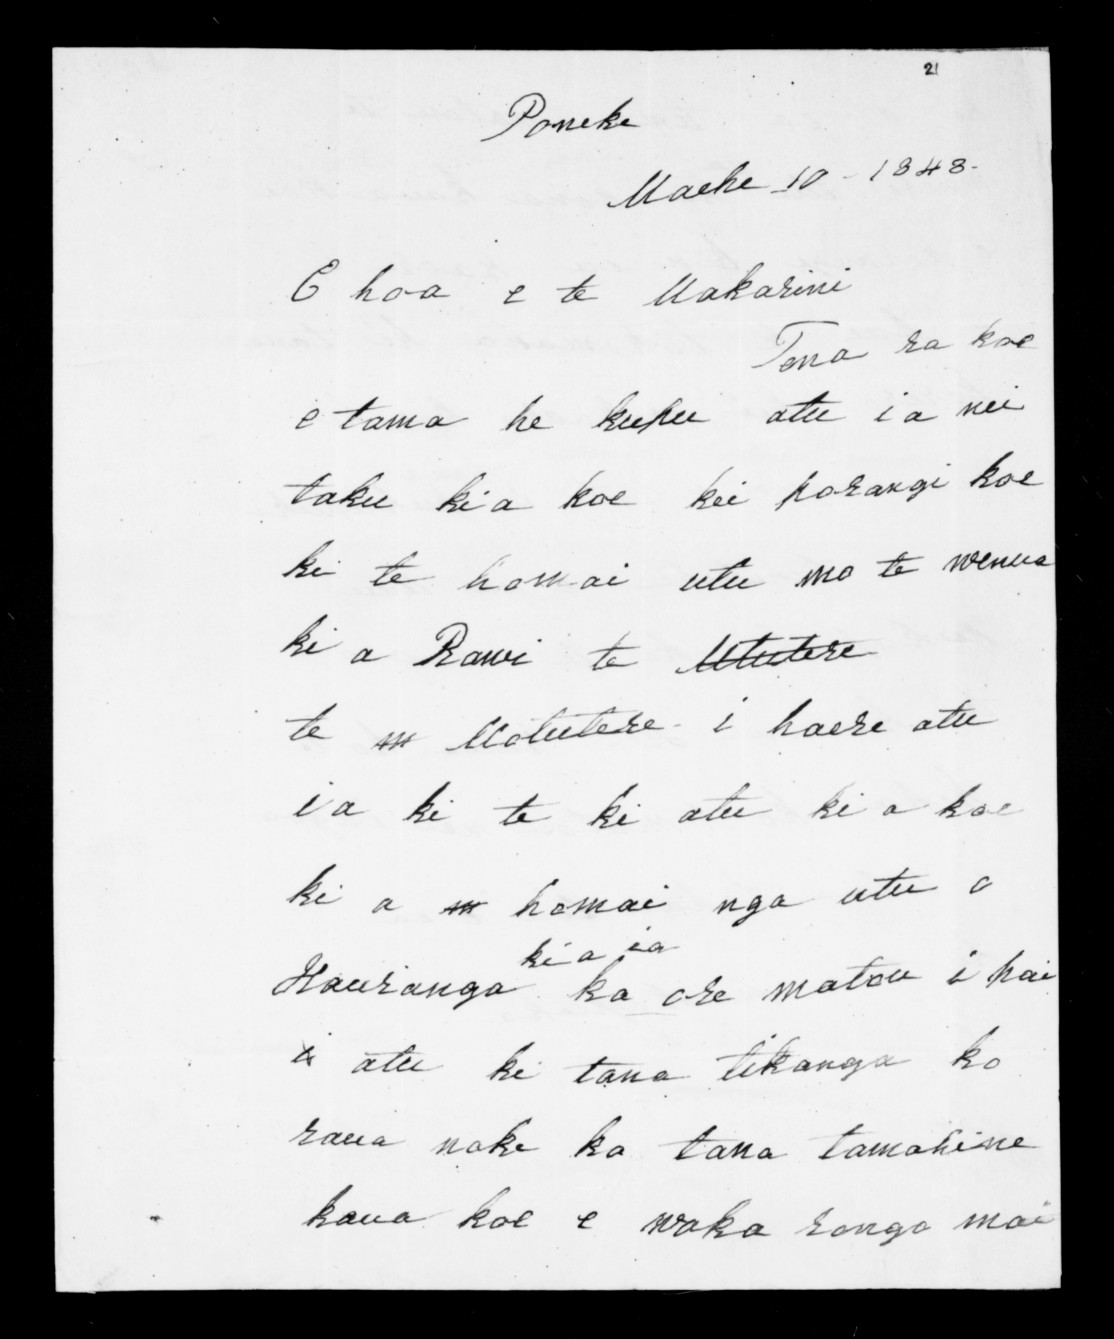 21
Poneke
Maehe 10 - 1848-
E hoa e te Makarini
Tena ra koe
e tama he kupu atu ia nei
taku ki a koe kei porangi koe
ki te homai utu mo te wenua
ki a Rawi te Mtutere
te m Motutere i haere atu
ia ki te ki atu ki a koe
ki a m homai nga utu o
ki a ia
Hauranga ka ore matou i pai
i atu ki tana tikanga ko
raua nake ko tana tamahine
kaua koe e waka rongo mai